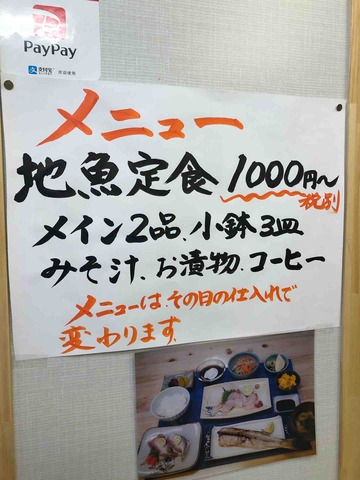 PayPay
支付宝
メニュー
地魚定食 1000円~
税別
メイン2品、小鉢3皿
みそ汁、お漬物、コーヒー
メニューは、その日の仕入れで
変わります。